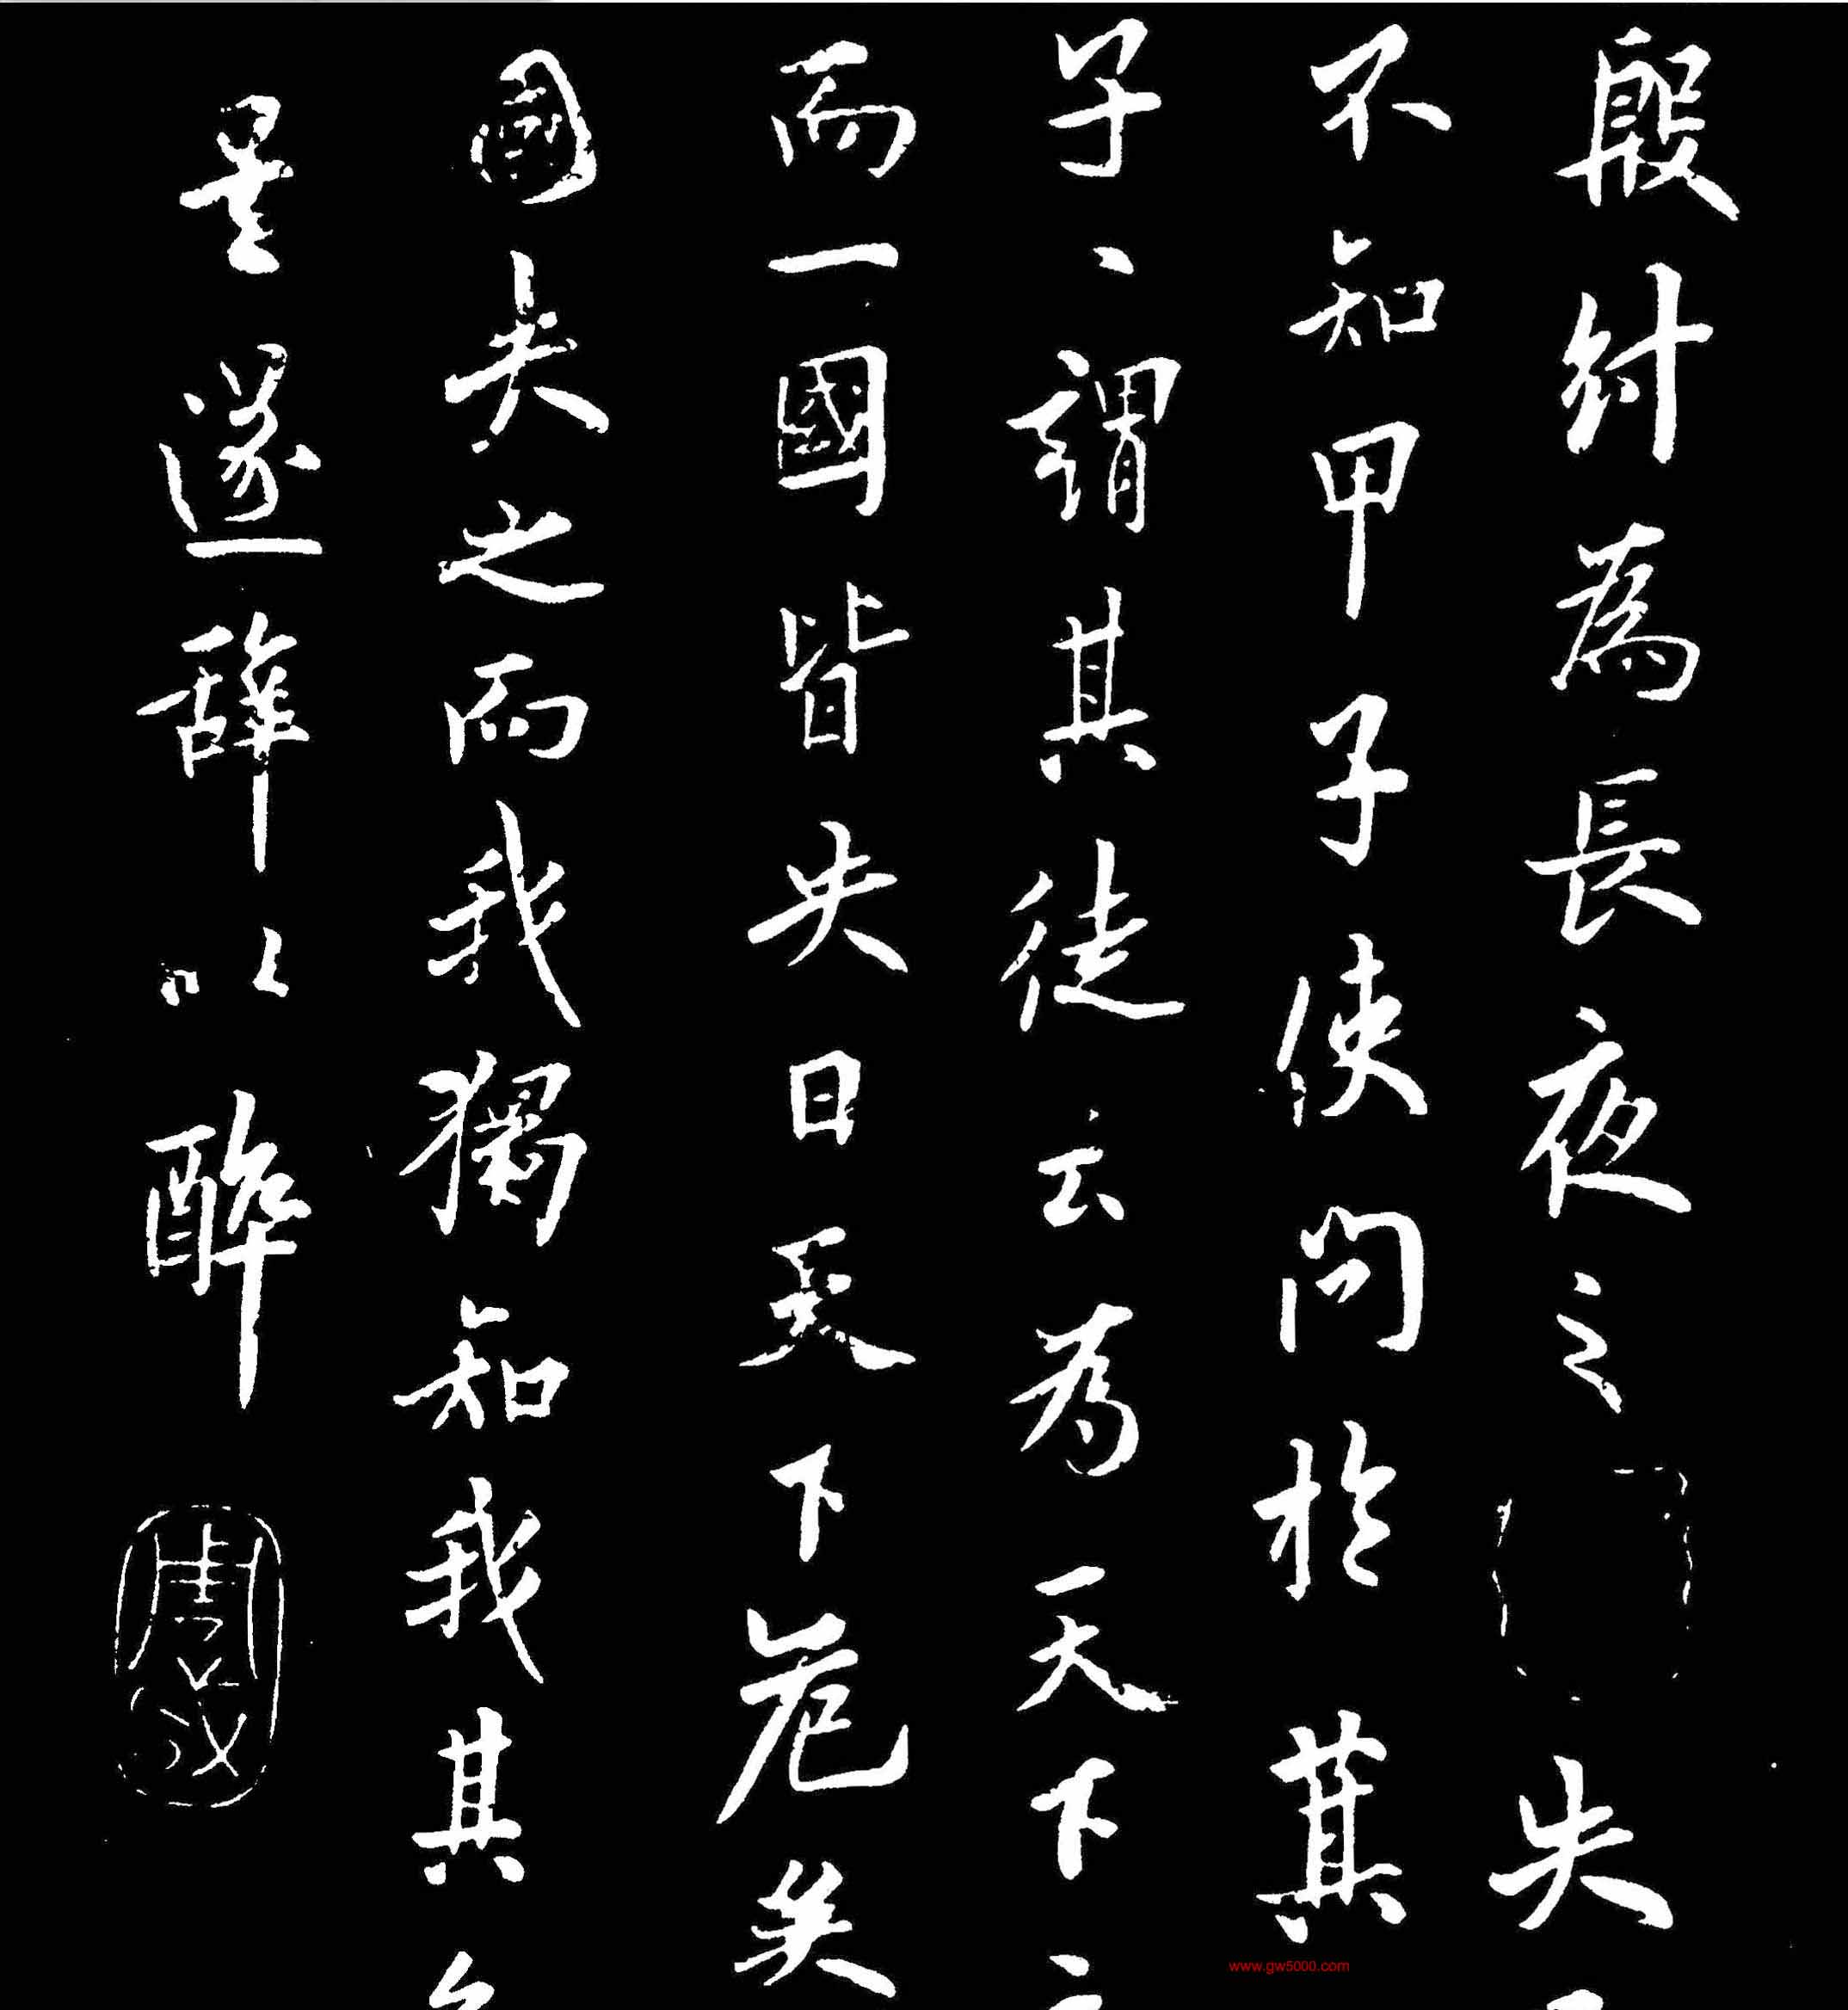 殷紂為長夜之失
不知甲子使問於箕
子、謂其徒云為天下
而一國皆失日天下危矣
國失之而我獨知我其
遂辭以醉
www.gw5000.com